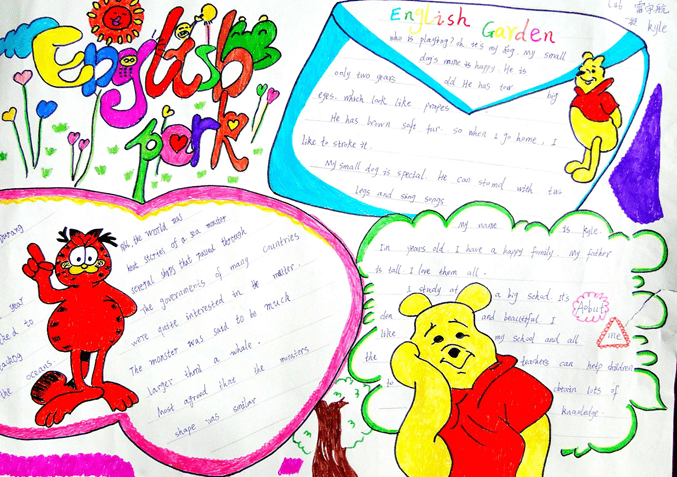 English
park
English Garden
雷
kyle
who is playting? oh it's my dog. My small
dog's name is happy. He is
only two years old He has tow big
eyes. which look like
He has brown soft fur. so when I go home, I
like to stroke it.
My small dog is special. He can stand with two
legs and sing songs
the world was
stories of a sea monster
several ships that passed through
The governments of many countries
were quite interested in the matter.
The monster was said to be much
larger than a whale.
Most agreed that the monsters
shape was similar
year
to
the oceans.
my name is kyle.
I'm years old. I have a happy family. My father
is tall. I love them all.
I study at a big school. Its
den and beautiful. I
like my school and all
the teachers can help children
to obtain lots of
knowledge.
Aobut
me